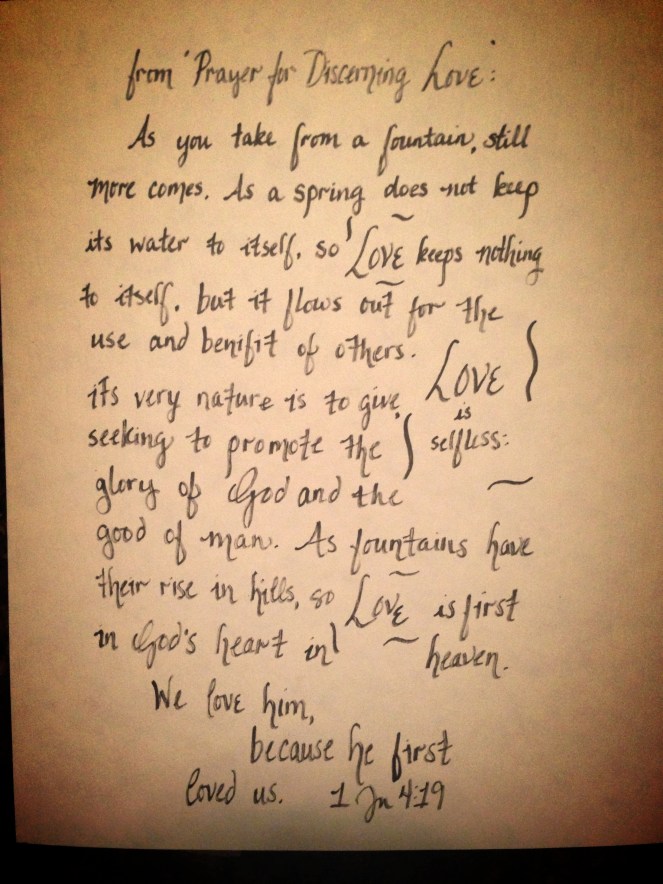 from 'Prayer for Discerning Love':
As you take from a fountain, still
more comes. As a spring does not keep
its water to itself, so Love keeps nothing
to itself, but it flows out for the
use and benifit of others.
its very nature is to give,
seeking to promote the
Love
is
selfless:
glory of God and the
good of man. As fountains have
their rise in hills, so Love is first
in God's heart in heaven.
We love him,
because he first
loved us. 1 Jn 4:19